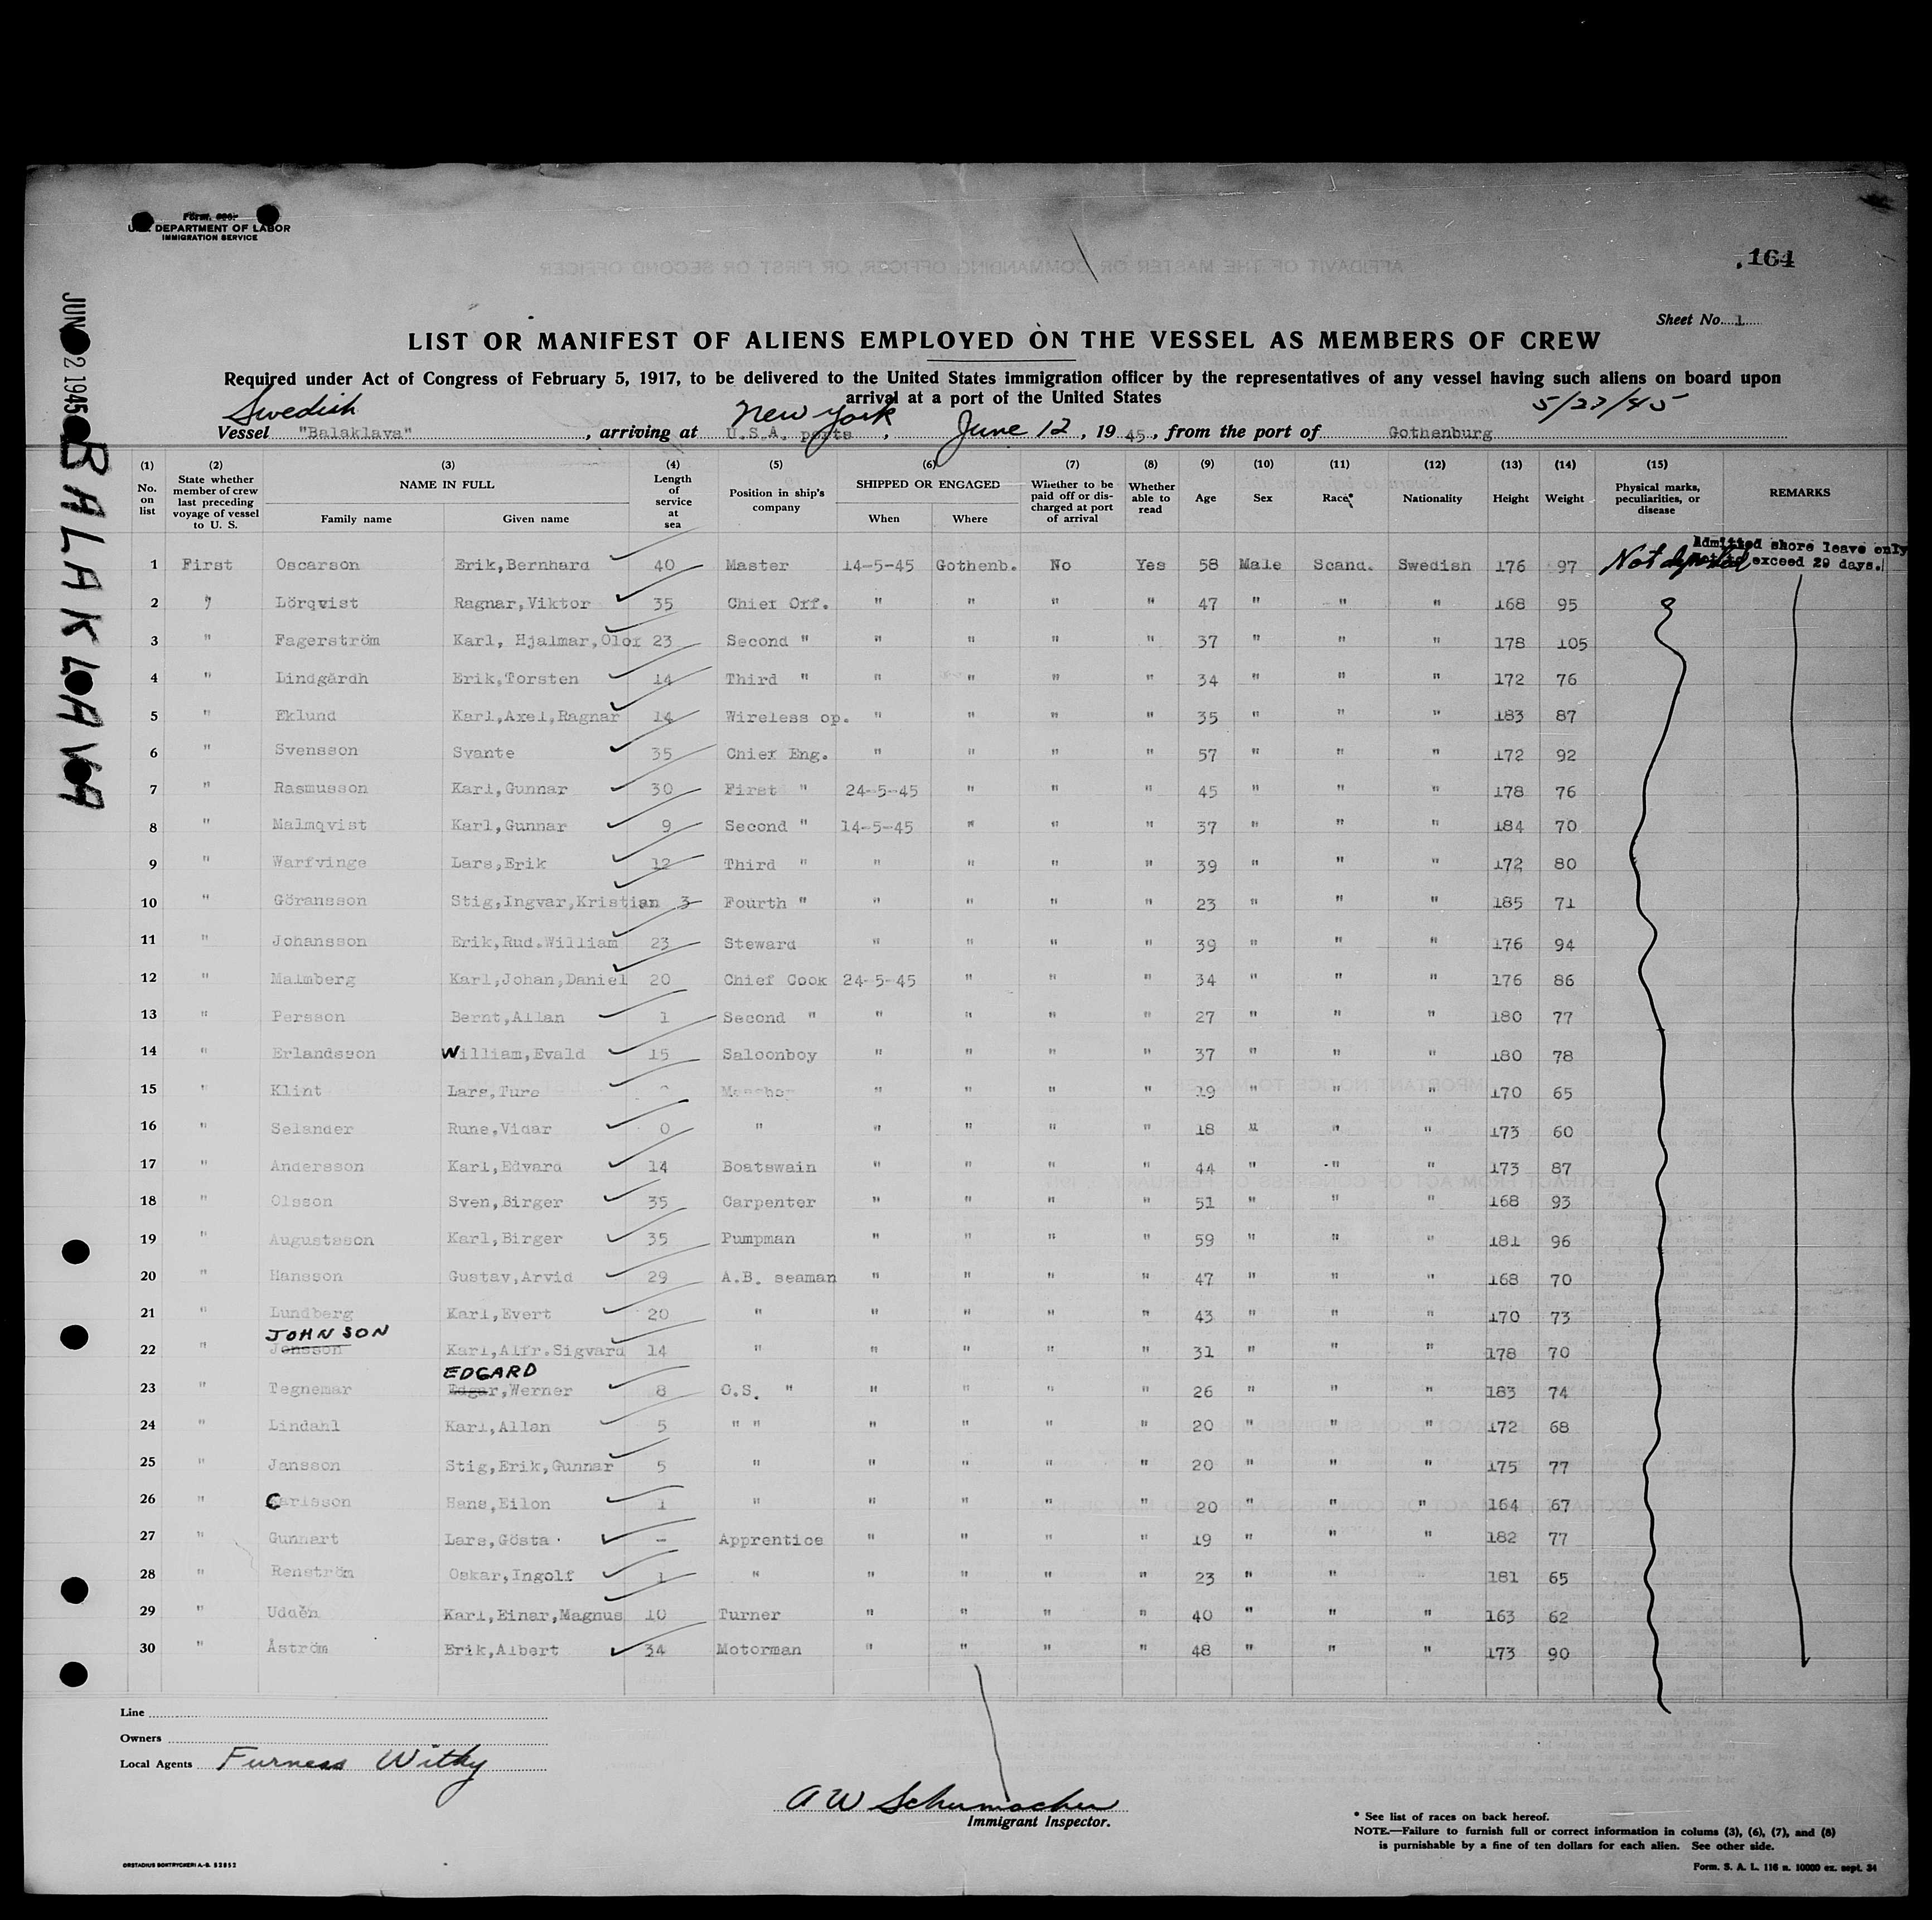 Form. 680.
U.S. DEPARTMENT OF LABOR
IMMIGRATION SERVICE
164
JUN 12 1945
BALAKLAVA
Sheet No. 1
LIST OR MANIFEST OF ALIENS EMPLOYED ON THE VESSEL AS MEMBERS OF CREW
Required under Act of Congress of February 5, 1917, to be delivered to the United States immigration officer by the representatives of any vessel having such aliens on board upon
arrival at a port of the United States
Swedish New York 5/27/45
Vessel "Balaklava", arriving at U.S.A. ports, June 12, 1945, from the port of Gothenburg
(1) (2) (3) (4) (5) (6) (7) (8) (9) (10) (11) (12) (13) (14) (15)
No. on list | State whether member of crew last preceding voyage of vessel to U. S. | NAME IN FULL Family name Given name | Length of service at sea | Position in ship's company | SHIPPED OR ENGAGED When Where | Whether to be paid off or discharged at port of arrival | Whether able to read | Age | Sex | Race* | Nationality | Height | Weight | Physical marks, peculiarities, or disease | REMARKS
Admitted shore leave only
1 First Oscarson Erik,Bernhard 40 Master 14-5-45 Gothenb. No Yes 58 Male Scand. Swedish 176 97 Not deported exceed 29 days.
2 " Lörqvist Ragnar,Viktor 35 Chief Off. " " " " 47 " " " 168 95
3 " Fagerström Karl, Hjalmar,Olof 23 Second " " " " " 37 " " " 178 105
4 " Lindgärdh Erik,Torsten 14 Third " " " " " 34 " " " 172 76
5 " Eklund Karl,Axel,Ragnar 14 Wireless op. " " " " 35 " " " 183 87
6 " Svensson Svante 35 Chief Eng. " " " " 57 " " " 172 92
7 " Rasmusson Karl,Gunnar 30 First " 24-5-45 " " " 45 " " " 178 76
8 " Malmqvist Karl,Gunnar 9 Second " 14-5-45 " " " 37 " " " 184 70
9 " Warfvinge Lars,Erik 12 Third " " " " " 39 " " " 172 80
10 " Göransson Stig,Ingvar,Kristian 3 Fourth " " " " " 23 " " " 185 71
11 " Johansson Erik,Rud.William 23 Steward " " " " 39 " " " 176 94
12 " Malmberg Karl,Johan,Daniel 20 Chief Cook 24-5-45 " " " 34 " " " 176 86
13 " Persson Bernt,Allan 1 Second " " " " " 27 " " " 180 77
14 " Erlandsson William,Evald 15 Saloonboy " " " " 37 " " " 180 78
15 " Klint Lars,Ture " " " " 19 " " " 170 65
16 " Selander Rune,Vidar 0 " " " " " 18 " " " 173 60
17 " Andersson Karl,Edvard 14 Boatswain " " " " 44 " " " 173 87
18 " Olsson Sven,Birger 35 Carpenter " " " " 51 " " " 168 93
19 " Augustsson Karl,Birger 35 Pumpman " " " " 59 " " " 181 96
20 " Hansson Gustav,Arvid 29 A.B. seaman " " " " 47 " " " 168 70
21 " Lundberg Karl,Evert 20 " " " " " 43 " " " 170 73
JOHNSON
22 " Jonsson Karl,Alfr.Sigvard 14 " " " " " 31 " " " 178 70
EDGARD
23 " Tegnemar Edgar,Werner 8 O.S. " " " " " 26 " " " 183 74
24 " Lindahl Karl,Allan 5 " " " " " " 20 " " " 172 68
25 " Jansson Stig,Erik,Gunnar 5 " " " " " 20 " " " 175 77
26 " Carlsson Hans,Eilon 1 " " " " " 20 " " " 164 67
27 " Gunnart Lars,Gösta - Apprentice " " " " 19 " " " 182 77
28 " Renström Oskar,Ingolf 1 " " " " " 23 " " " 181 65
29 " Uddën Karl,Einar,Magnus 10 Turner " " " " 40 " " " 163 62
30 " Åström Erik,Albert 34 Motorman " " " " 48 " " " 173 90
Line
Owners
Local Agents Furness Withy
A W Schumacher
Immigrant Inspector.
* See list of races on back hereof.
NOTE.—Failure to furnish full or correct information in colums (3), (6), (7), and (8)
is punishable by a fine of ten dollars for each alien. See other side.
ORSTADIUS BOKTRYCKERI A.-B. 53852
Form. S. A. L. 116 n. 10000 ex. sept. 34